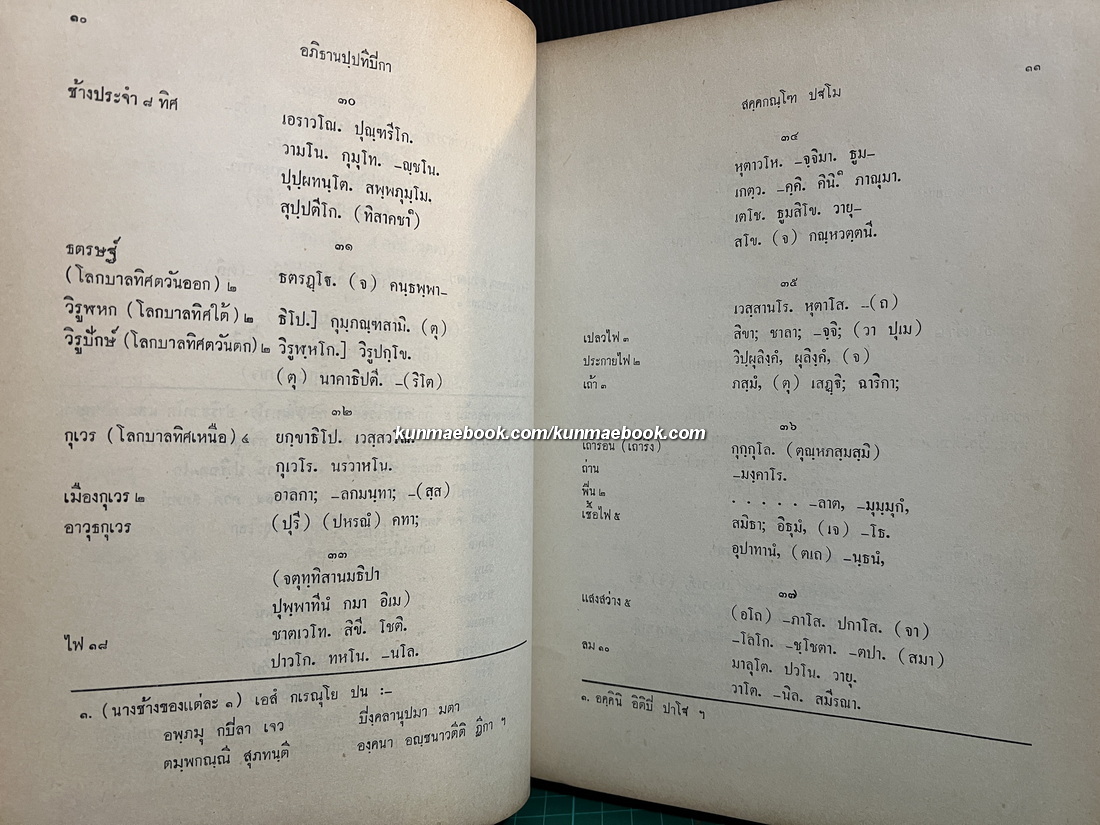 ๑๐
อภิธานปฺปทีปิกา
ช้างประจำ ๘ ทิศ
๓๐
เอราวโณ. ปุณฺฑรีโก.
วามโน. กุมุโท. -ญฺชโน.
ปุปฺผทนฺโต. สพฺพภุมฺโม.
สุปฺปตีโก. (ทิสาคชา๑)
ธตรษฐ์
๓๑
(โลกบาลทิศตวันออก) ๒ ธตรฏฺโฐ. (จ) คนฺธพฺพา-
วิรูฬหก (โลกบาลทิศใต้) ๒ ธิโป.] กุมฺภณฺฑสามิ. (ตุ)
วิรูปักษ์ (โลกบาลทิศตวันตก) ๒ วิรูฬฺหโก.] วิรูปกฺโข.
(ตุ) นาคาธิปตี. -(ริโต)
๓๒
กุเวร (โลกบาลทิศเหนือ) ๔ ยกฺขาธิโป. เวสฺสวโณ.
กุเวโร. นรวาหโน.
เมืองกุเวร ๒ อาลกา; -ลกมนฺทา; -(สฺส)
อาวุธกุเวร (ปุรี) (ปหรณํ) คทา;
๓๓
(จตุทฺทิสานมธิปา
ปุพฺพาทีนํ กมา อิเม)
ชาตเวโท. สิขี. โชติ.
ไฟ ๑๘ ปาวโก. ทหโน. -นโล.
๑. (นางช้างของแต่ละ ๑) เอสํ กเรณุโย ปน :-
อพฺภมุ กปิลา เจว ปิงฺคลานุปมา มตา
ตมฺพกณฺณี สุภทนฺตี องฺคนา อญฺชนาวตีติ ฏีกา ฯ
๑๑
สคฺคกณฺโฑ ปฐโม
๓๔
หุตาวโห. -จฺจิมา. ธูม-
เกตฺว. -คฺคิ. คินิ.๑ ภาณุมา.
เตโช. ธูมสิโข. วายุ-
สโข. (จ) กณฺหวตฺตนี.
๓๕
เวสฺสานโร. หุตาโส. -(ถ)
เปลวไฟ ๓ สิขา; ชาลา; -จฺจิ; (วา ปุเม)
ประกายไฟ ๒ วิปฺผุลิงฺคํ, ผุลิงฺคํ, (จ)
เถ้า ๓ ภสฺมํ, (ตุ) เสฏฺฐิ; ฉาริกา;
๓๖
เถ้าร้อน (เถ้ารึง) กุกฺกุโล. (ตุณฺหภสฺมสฺมิ)
ถ่าน -มงฺคาโร.
ฟืน ๒ . . . . . -ลาต, -มุมฺมุกํ,
เชื้อไฟ ๕ สมิธา; อิธุมํ, (เจ) -โธ.
อุปาทานํ, (ตเถ) -นฺธนํ,
๓๗
แสงสว่าง ๕ (อโถ) -ภาโส. ปกาโส. (จา)
-โลโก. -ชฺโชตา. -ตปา. (สมา)
ลม ๑๐ มาลุโต. ปวโน. วายุ.
วาโต. -นิล. สมีรณา.
๑. อคฺคินิ อิติปิ ปาโฐ ฯ
kunmaebook.com/kunmaebook.com